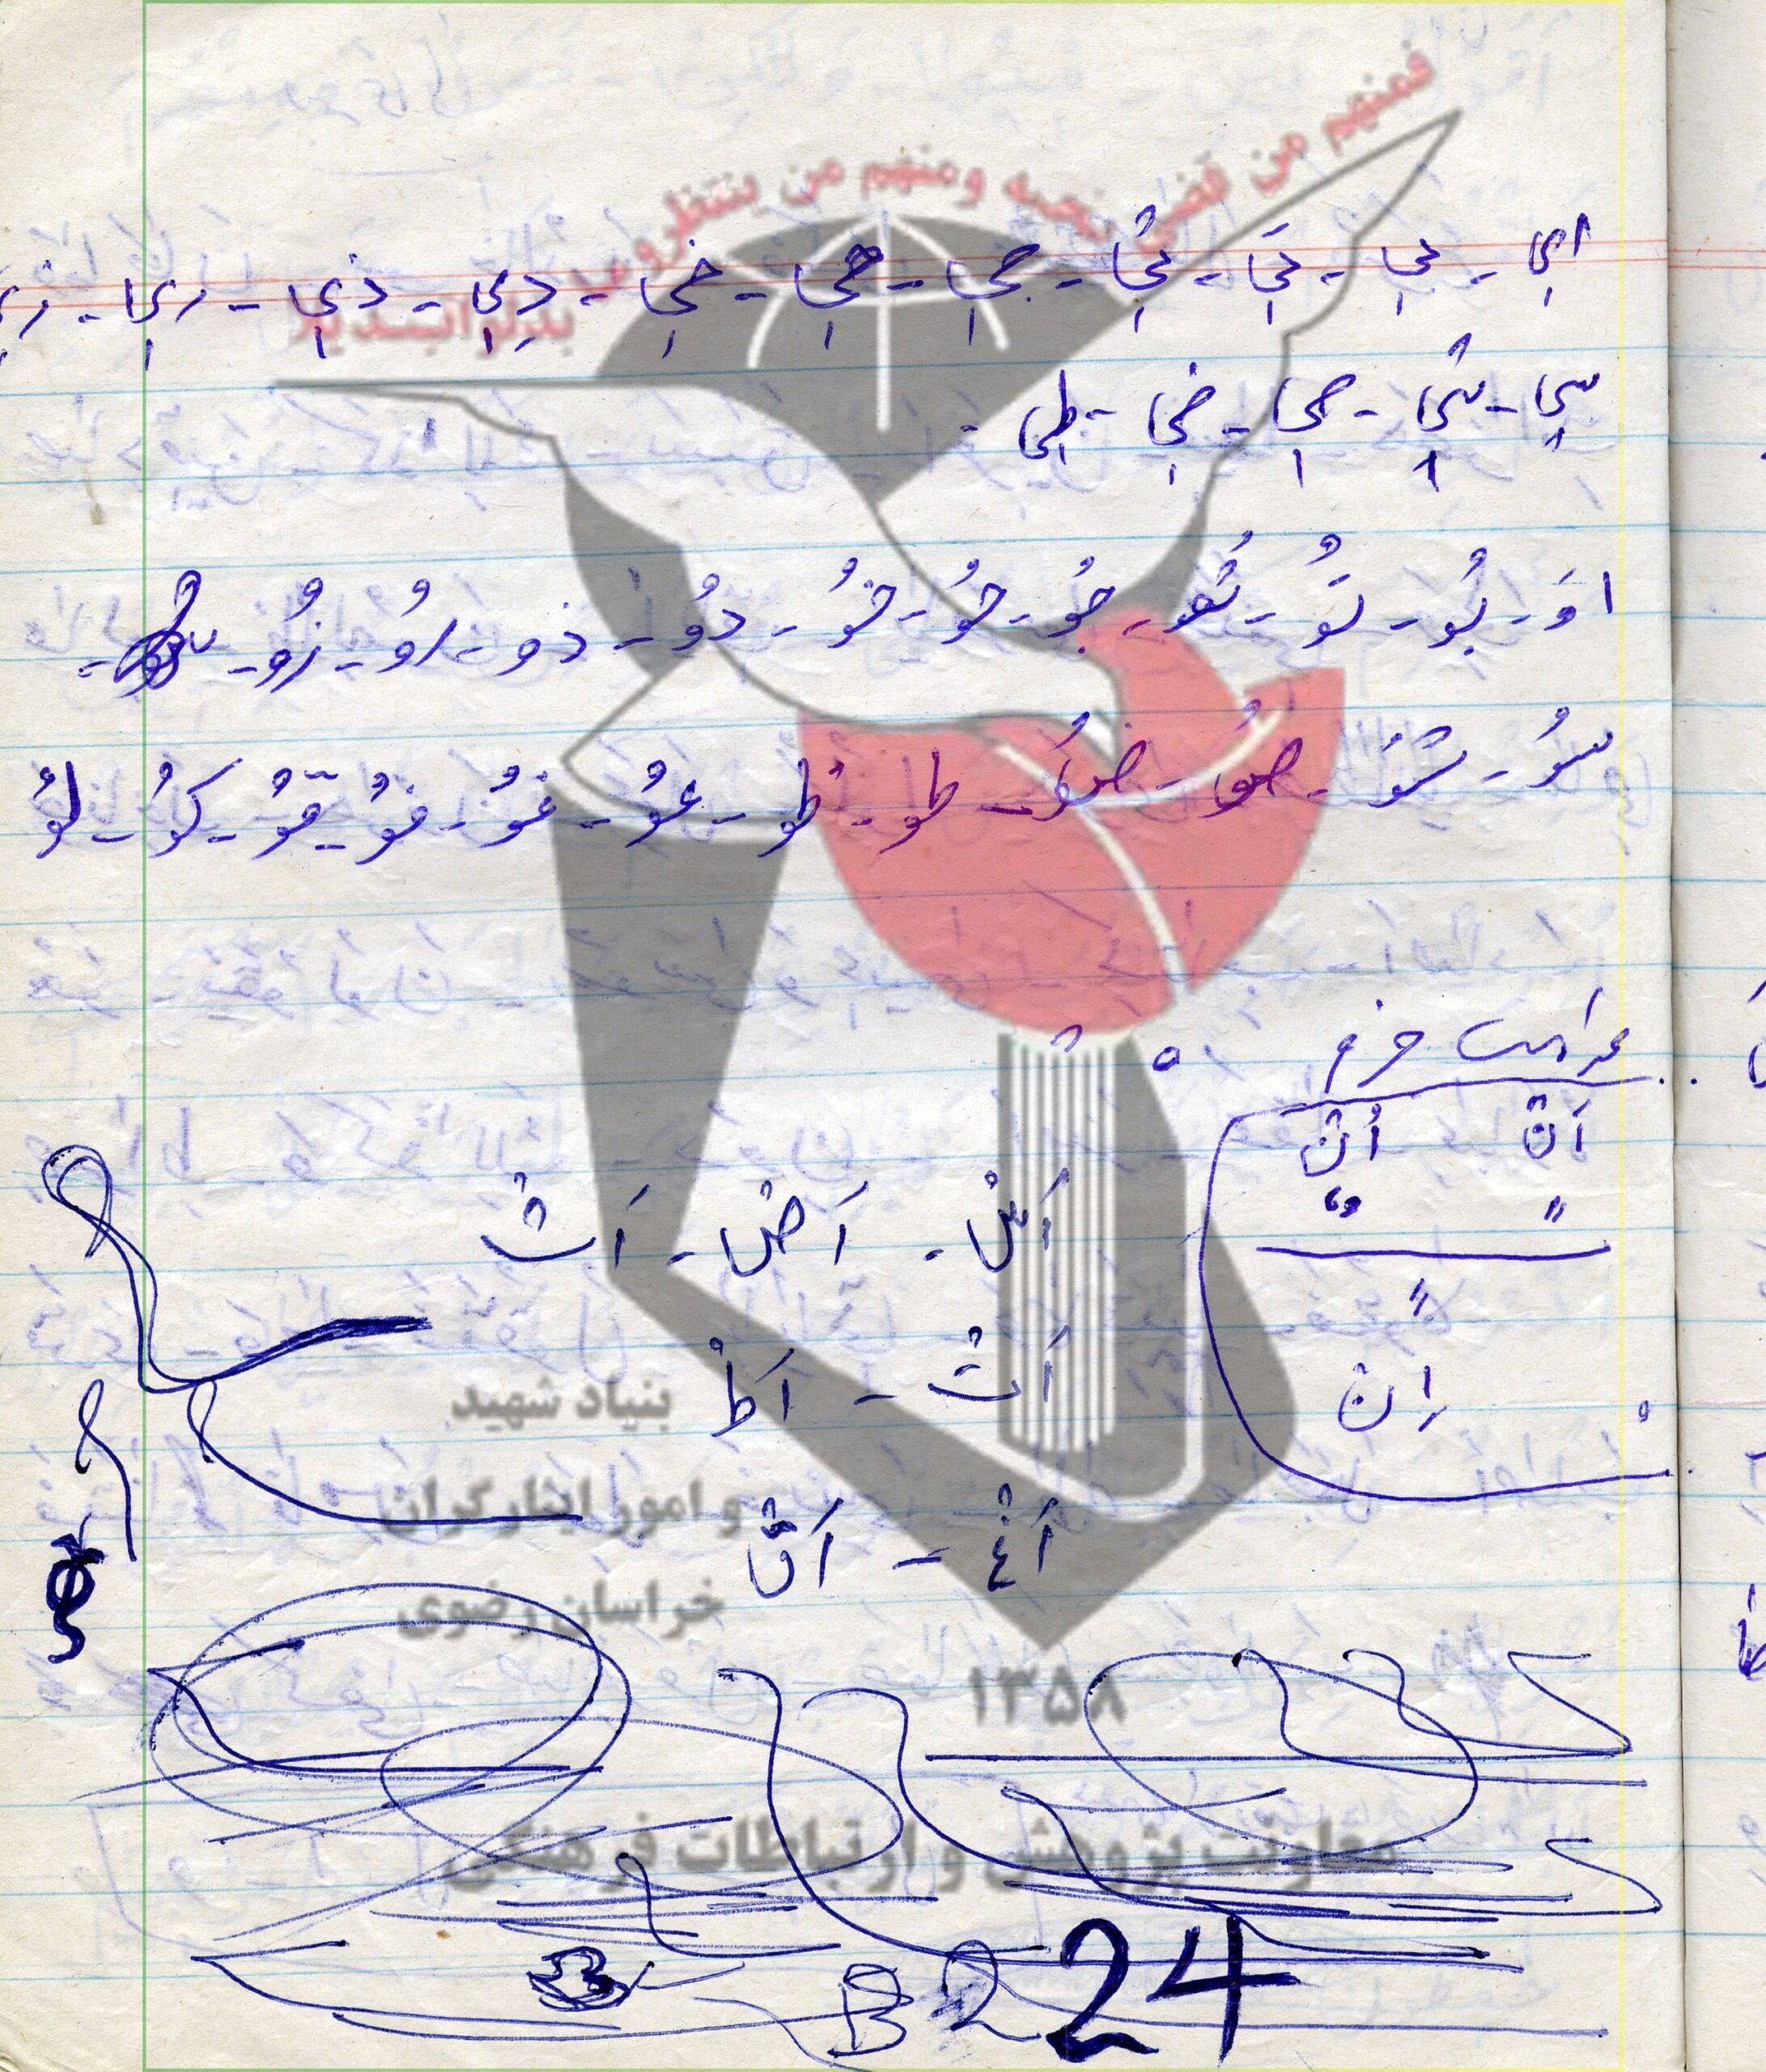 فمنهم من قضی نحبه ومنهم من ینتظر و ما بدلوا تبدیلا
اىِ - بىِ - تىِ - ثىِ - جىِ - حىِ - خىِ - دِىِ - ذىِ - رىِ - زىِ
سىِ - شىِ - صىِ - ضىِ - طىِ -
اوَ - بُو - تُو - ثُو - جُو - حُو - خُو - دُو - ذو - رُو - زُو -
سُو - شُو - صُو - ضُو - طو - ظُو - عُو - غُو - فُو - قُو - کُو - لُو
علامت جزم ْ
اَنْ اُنْ
اَسْ - اَضْ - اَثْ
اِنْ
اَتْ - اَظْ
بنیاد شهید
و امور ایثارگران
اَغْ - اَقْ
خراسان رضوی
۱۳۵۸
معاونت پژوهش و ارتباطات فرهنگی
B 2 24